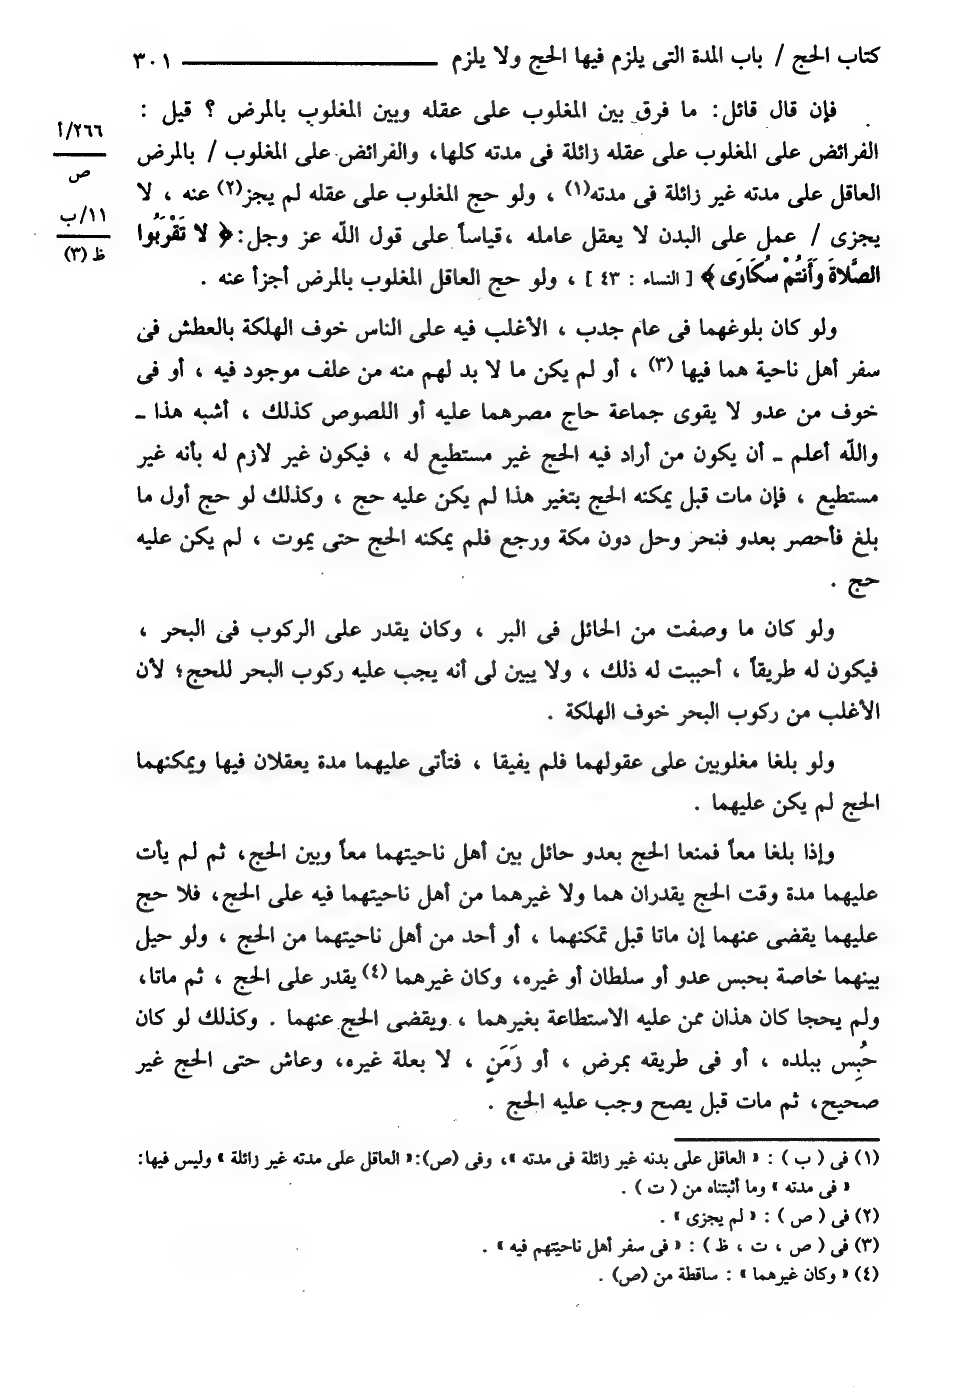 كتاب الحج / باب المدة التى يلزم فيها الحج ولا يلزم ٣٠١
فإن قال قائل: ما فرق بين المغلوب على عقله وبين المغلوب بالمرض ؟ قيل :
الفرائض على المغلوب على عقله زائلة فى مدته كلها، والفرائض على المغلوب / بالمرض
٢٦٦/أ
ص
العاقل على مدته غير زائلة فى مدته(١) ، ولو حج المغلوب على عقله لم يجز(٢) عنه ، لا
يجزى / عمل على البدن لا يعقل عامله ،قياساً على قول اللّه عز وجل:﴿ لا تَقْرَبُوا
١١/ب
ظ (٣)
الصَّلاةَ وَأَنتُمْ سُكَارَى ﴾ [ النساء : ٤٣ ] ، ولو حج العاقل المغلوب بالمرض أجزأ عنه .
ولو كان بلوغهما فى عام جدب ، الأغلب فيه على الناس خوف الهلكة بالعطش فى
سفر أهل ناحية هما فيها (٣) ، أو لم يكن ما لا بد لهم منه من علف موجود فيه ، أو فى
خوف من عدو لا يقوى جماعة حاج مصرهما عليه أو اللصوص كذلك ، أشبه هذا ـ
واللّه أعلم ـ أن يكون من أراد فيه الحج غير مستطيع له ، فيكون غير لازم له بأنه غير
مستطيع ، فإن مات قبل يمكنه الحج بتغير هذا لم يكن عليه حج ، وكذلك لو حج أول ما
بلغ فأحصر بعدو فنحر وحل دون مكة ورجع فلم يمكنه الحج حتى يموت ، لم يكن عليه
حج .
ولو كان ما وصفت من الحائل فى البر ، وكان يقدر على الركوب فى البحر ،
فيكون له طريقاً ، أحببت له ذلك ، ولا يبين لى أنه يجب عليه ركوب البحر للحج؛ لأن
الأغلب من ركوب البحر خوف الهلكة .
ولو بلغا مغلوبين على عقولهما فلم يفيقا ، فتأتى عليهما مدة يعقلان فيها ويمكنهما
الحج لم يكن عليهما .
وإذا بلغا معاً فمنعا الحج بعدو حائل بين أهل ناحيتهما معاً وبين الحج، ثم لم يأت
عليهما مدة وقت الحج يقدران هما ولا غيرهما من أهل ناحيتهما فيه على الحج، فلا حج
عليهما يقضى عنهما إن ماتا قبل تمكنهما ، أو أحد من أهل ناحيتهما من الحج ، ولو حيل
بينهما خاصة بحبس عدو أو سلطان أو غيره، وكان غيرهما (٤) يقدر على الحج ، ثم ماتا،
ولم يحجا كان هذان ممن عليه الاستطاعة بغيرهما ، ويقضى الحج عنهما . وكذلك لو كان
حُبِس ببلده ، أو فى طريقه بمرض ، أو زَمَنٍ ، لا بعلة غيره، وعاش حتى الحج غير
صحيح، ثم مات قبل يصح وجب عليه الحج .
(١) فى ( ب ) : « العاقل على بدنه غير زائلة فى مدته »، وفى (ص):« العاقل على مدته غير زائلة » وليس فيها:
« فى مدته » وما أثبتناه من ( ت ) .
(٢) فى ( ص ) : « لم يجزى » .
(٣) فى ( ص ، ت ، ظ ) : « فى سفر أهل ناحيتهم فيه » .
(٤) « وكان غيرهما » : ساقطة من (ص) .